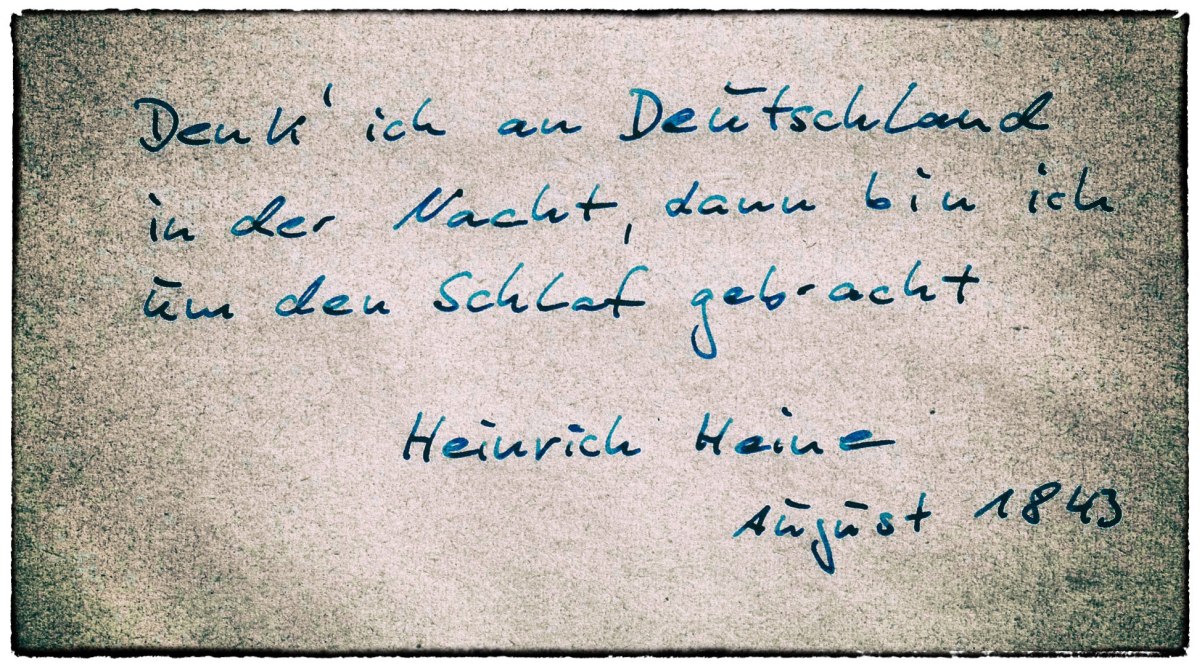 Denk' ich an Deutschland
in der Nacht, dann bin ich
um den Schlaf gebracht
Heinrich Heine
August 1843